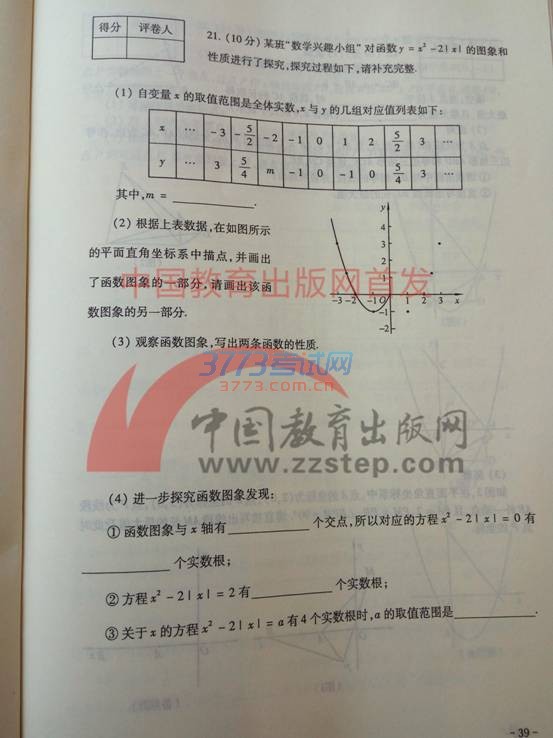 得分 评卷人
21. (10分) 某班“数学兴趣小组”对函数 y = x² - 2|x| 的图象和
性质进行了探究,探究过程如下,请补充完整.
(1) 自变量 x 的取值范围是全体实数, x 与 y 的几组对应值列表如下:
x … -3 -5/2 -2 -1 0 1 2 5/2 3 …
y … 3 5/4 m -1 0 -1 0 5/4 3 …
其中, m = ________.
(2) 根据上表数据,在如图所示
的平面直角坐标系中描点,并画出
了函数图象的一部分,请画出该函
数图象的另一部分.
y
4
3
2
1
-3 -2 -1 O 1 2 3 x
-1
-2
中国教育出版网首发
(3) 观察函数图象,写出两条函数的性质.
3773考试网
3773.com.cn
中国教育出版网
www.zzstep.com
(4) 进一步探究函数图象发现:
① 函数图象与 x 轴有________个交点,所以对应的方程 x² - 2|x| = 0 有
________个实数根;
② 方程 x² - 2|x| = 2 有________个实数根;
③ 关于 x 的方程 x² - 2|x| = a 有 4 个实数根时, a 的取值范围是________.
- 39 -